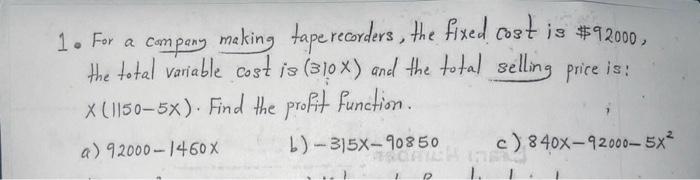 1. For a company making tape recorders, the fixed cost is $92000,
the total variable cost is (310X) and the total selling price is:
X(1150-5X). Find the profit function.
a) 92000-1460X b) -315X-90850 c) 840X-92000-5X²